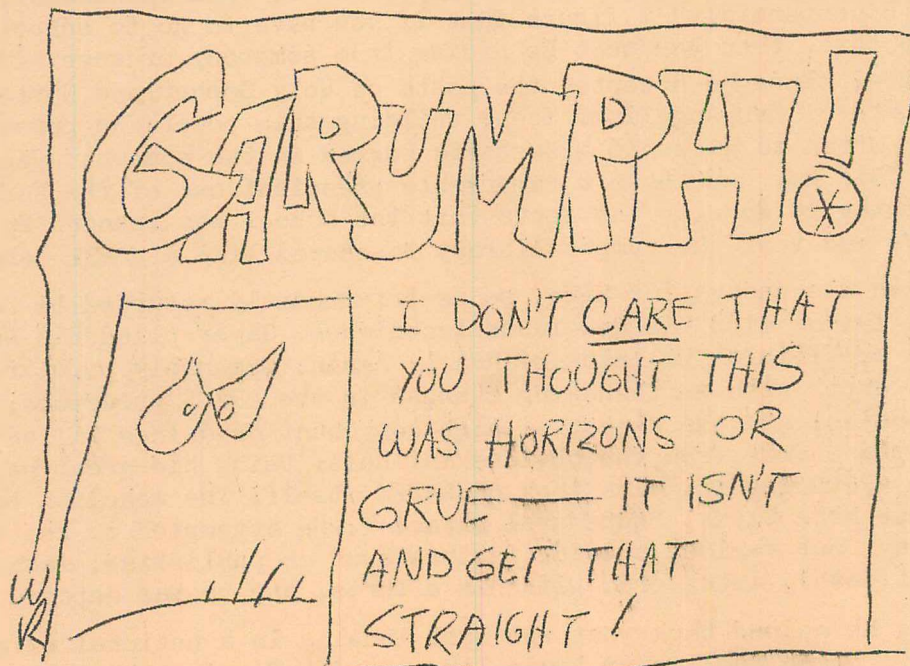 GARUMPH!
I DON'T CARE THAT
YOU THOUGHT THIS
WAS HORIZONS OR
GRUE — IT ISN'T
AND GET THAT
STRAIGHT!
WR